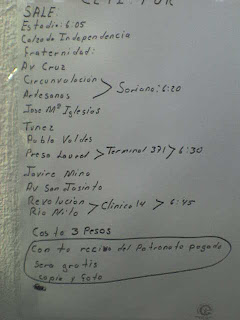 SALE:
Estadio: 6:05
Calzada Independencia
Fraternidad:
Av Cruz
Circunvalación
Artesanos > Soriana: 6:20
Jose Mª Iglesias
Tunez
Pablo Valdes
Presa Laurel > Terminal 371 > 6:30
Javire Mina
Av San Jasinto
Revolución
Rio Nilo > Clinica 14 > 6:45
Costo 3 Pesos
Con tu recivo del Patronato pagado
sera gratis
copia y foto